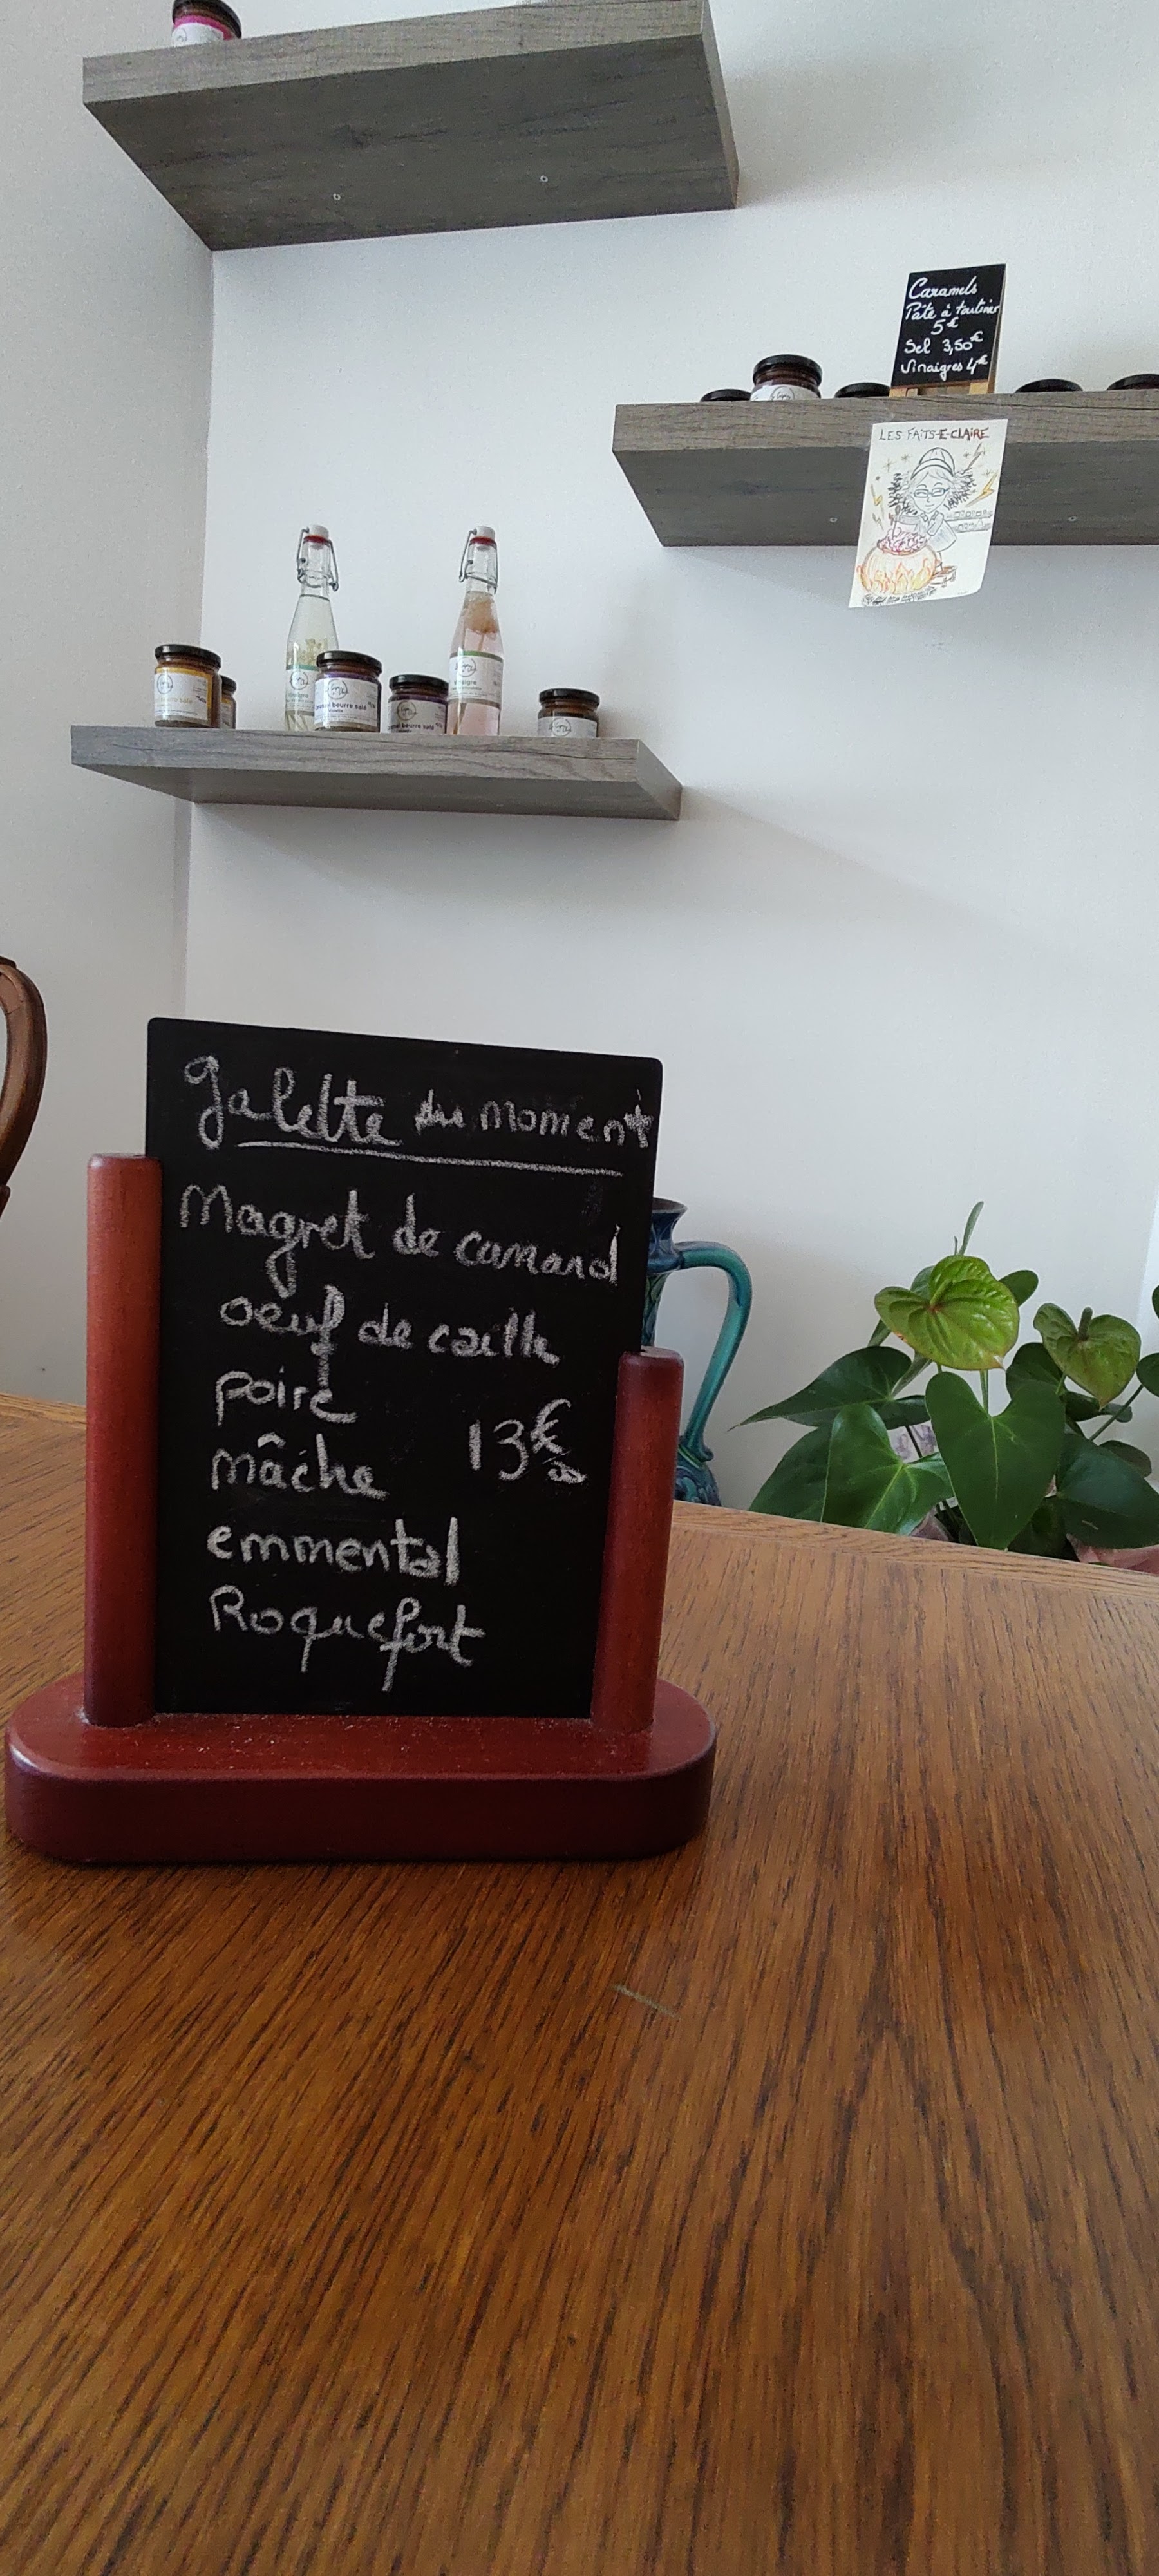 Caramels
Pâte à tartiner
5€
Sel 3,50€
Vinaigres 4€
LES FAITS-E-CLAIRE
Vinaigre
Caramel beurre salé
Caramel beurre salé
galette du moment
Magret de canard
oeuf de caille
poire
mâche
13€
emmental
Roquefort